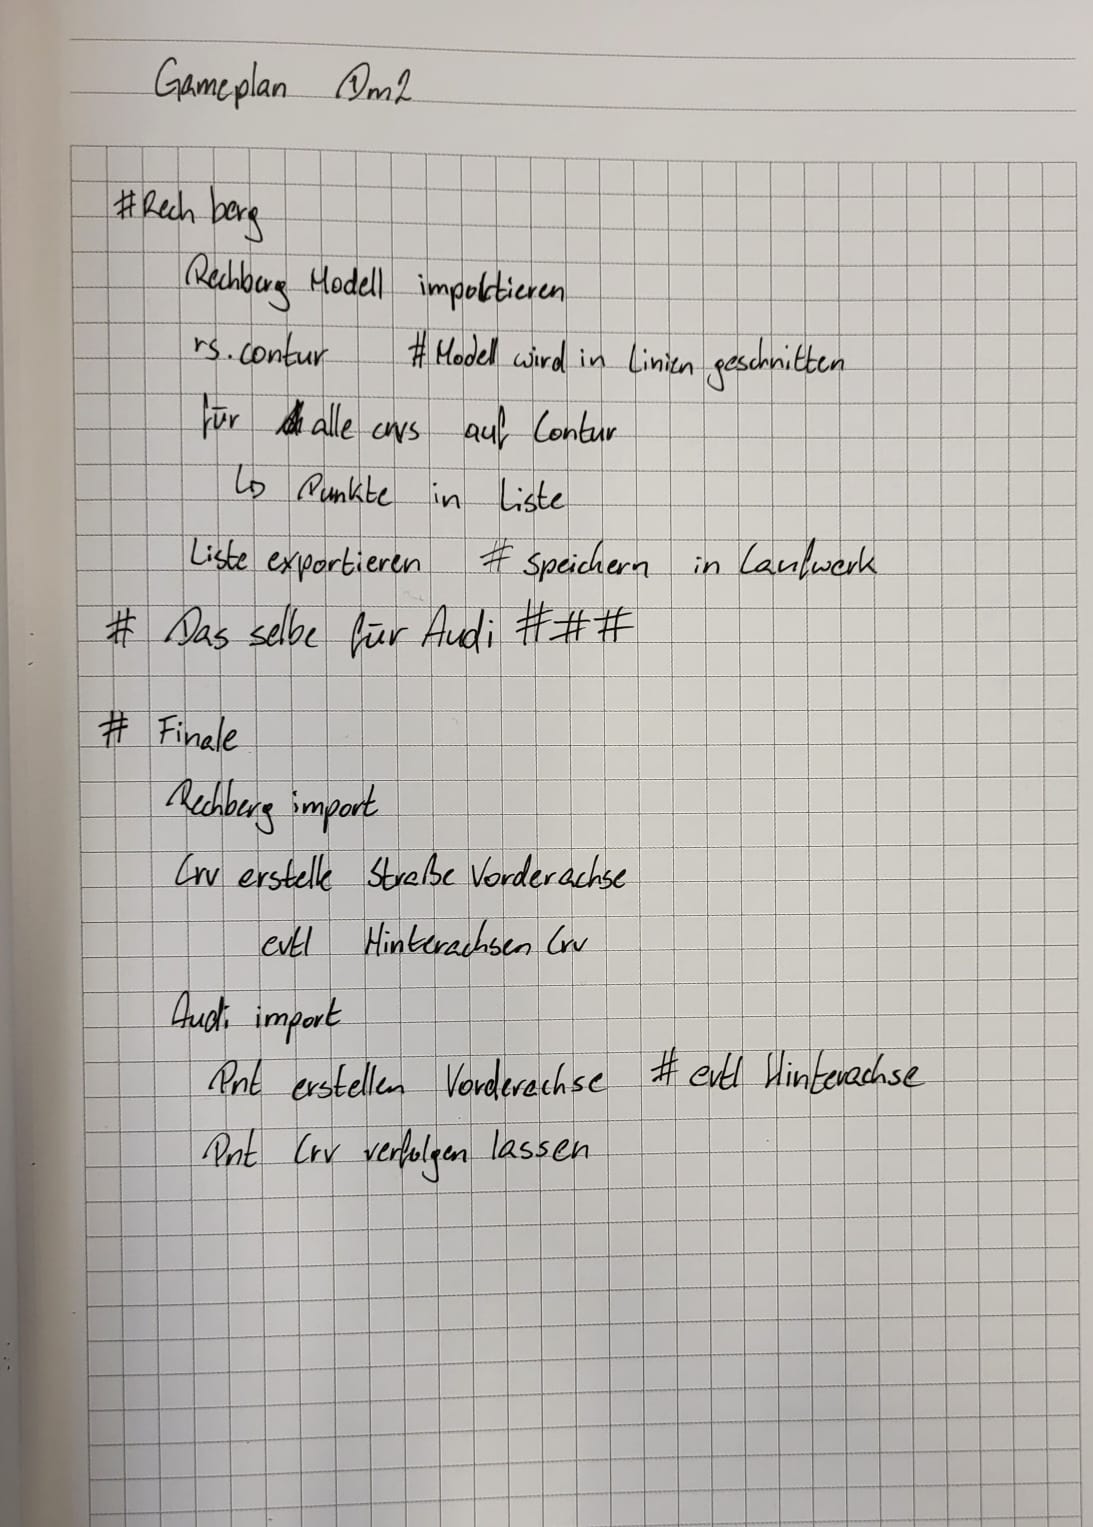 Gameplan Dm2
#Rech berg
Rechberg Modell importieren
rs.contur # Modell wird in Linien geschnitten
für alle crvs auf Contur
↳ Punkte in Liste
Liste exportieren # speichern in Laufwerk
# Das selbe für Audi ###
# Finale
Rechberg import
Crv erstelle Straße Vorderachse
evtl Hinterachsen Crv
Audi import
Pnt erstellen Vorderachse # evtl Hinterachse
Pnt Crv verfolgen lassen